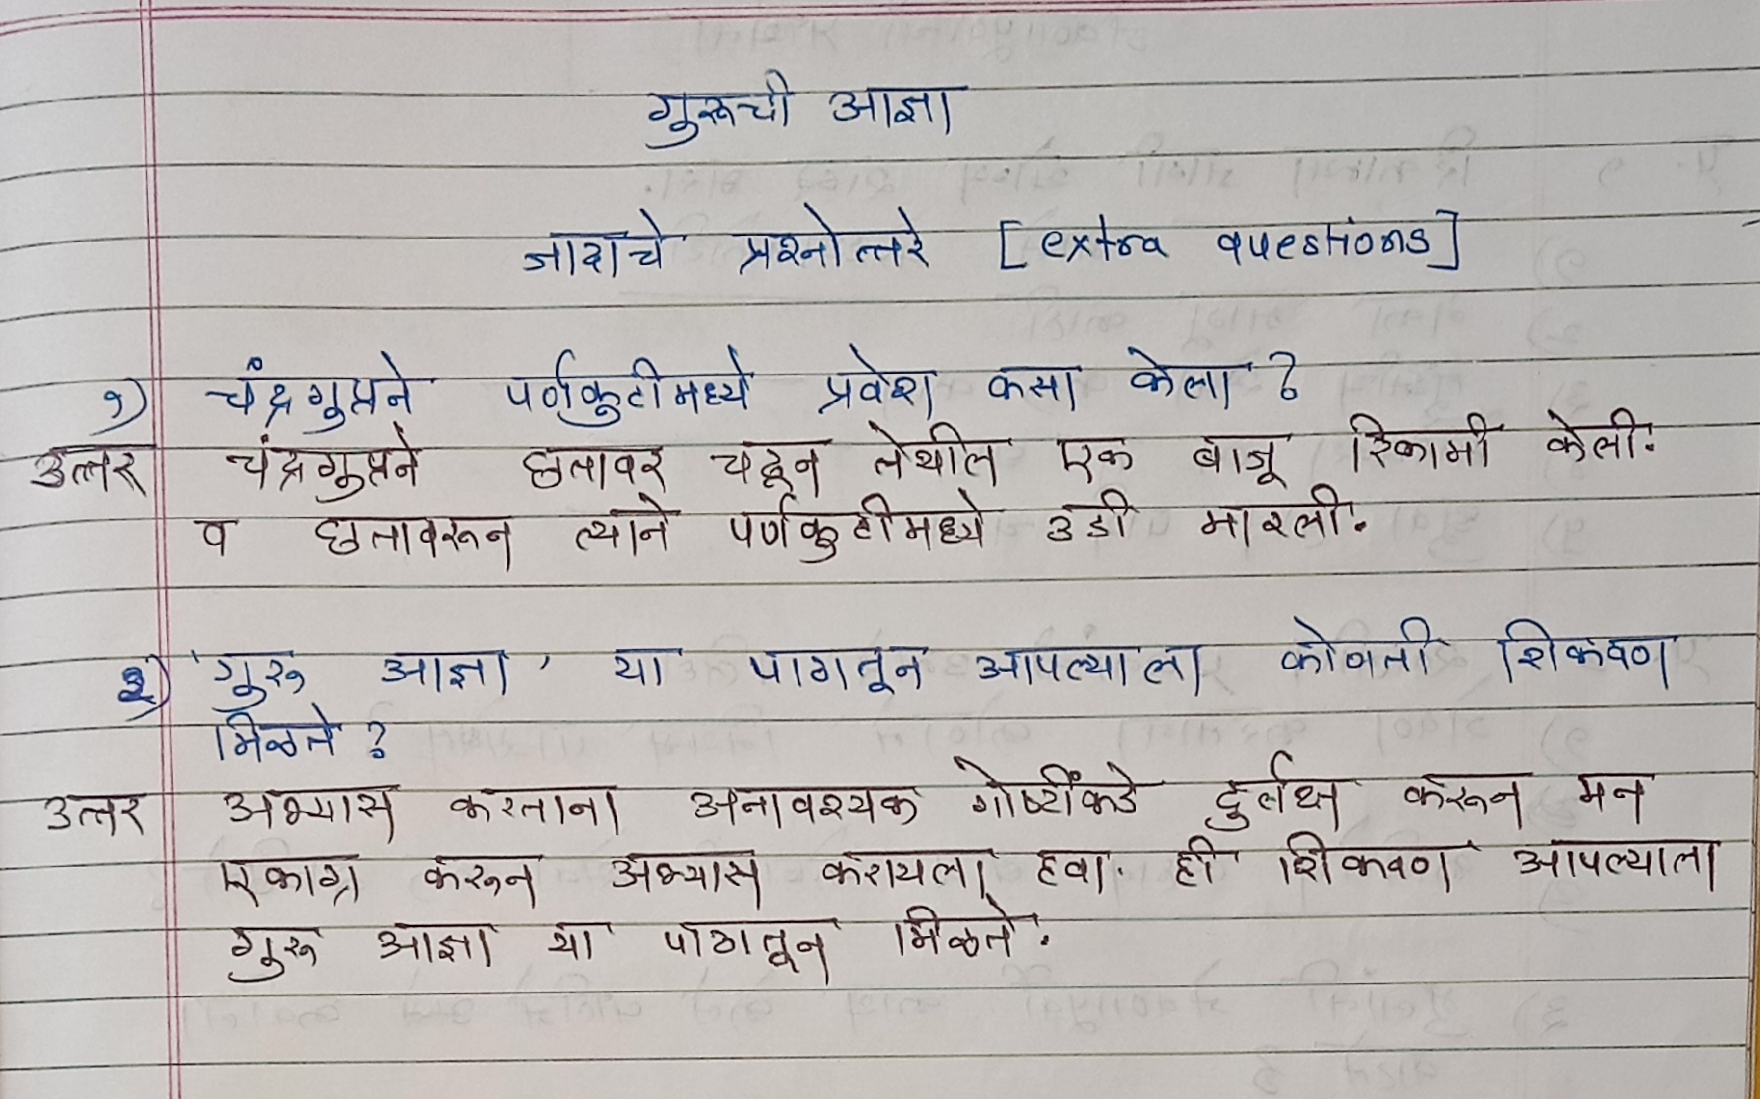 गुरूची आज्ञा
जादाचे प्रश्नोत्तरे [extra questions]
१) चंद्रगुप्तने पर्णकुटीमध्ये प्रवेश कसा केला?
उत्तर चंद्रगुप्तने छतावर चढून तेथील एक बाजू रिकामी केली.
व छतावरून त्याने पर्णकुटीमध्ये उडी मारली.
२) 'गुरू आज्ञा' या पाठातून आपल्याला कोणती शिकवण
मिळते?
उत्तर अभ्यास करताना अनावश्यक गोष्टींकडे दुर्लक्ष करून मन
एकाग्र करून अभ्यास करायला हवा. ही शिकवण आपल्याला
गुरू आज्ञा या पाठातून मिळते.